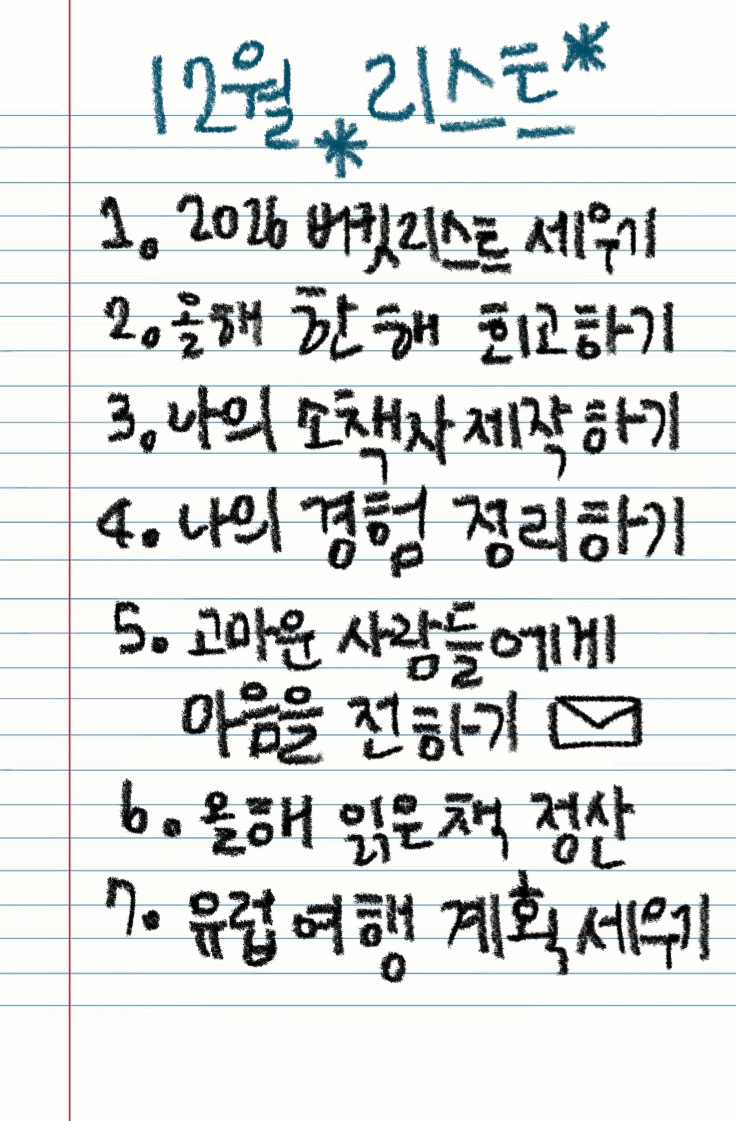 12월 리스트
1. 2026 버킷리스트 세우기
2. 올해 한 해 회고하기
3. 나의 소책자 제작하기
4. 나의 경험 정리하기
5. 고마운 사람들에게
마음을 전하기
6. 올해 읽은 책 정산
7. 유럽 여행 계획 세우기